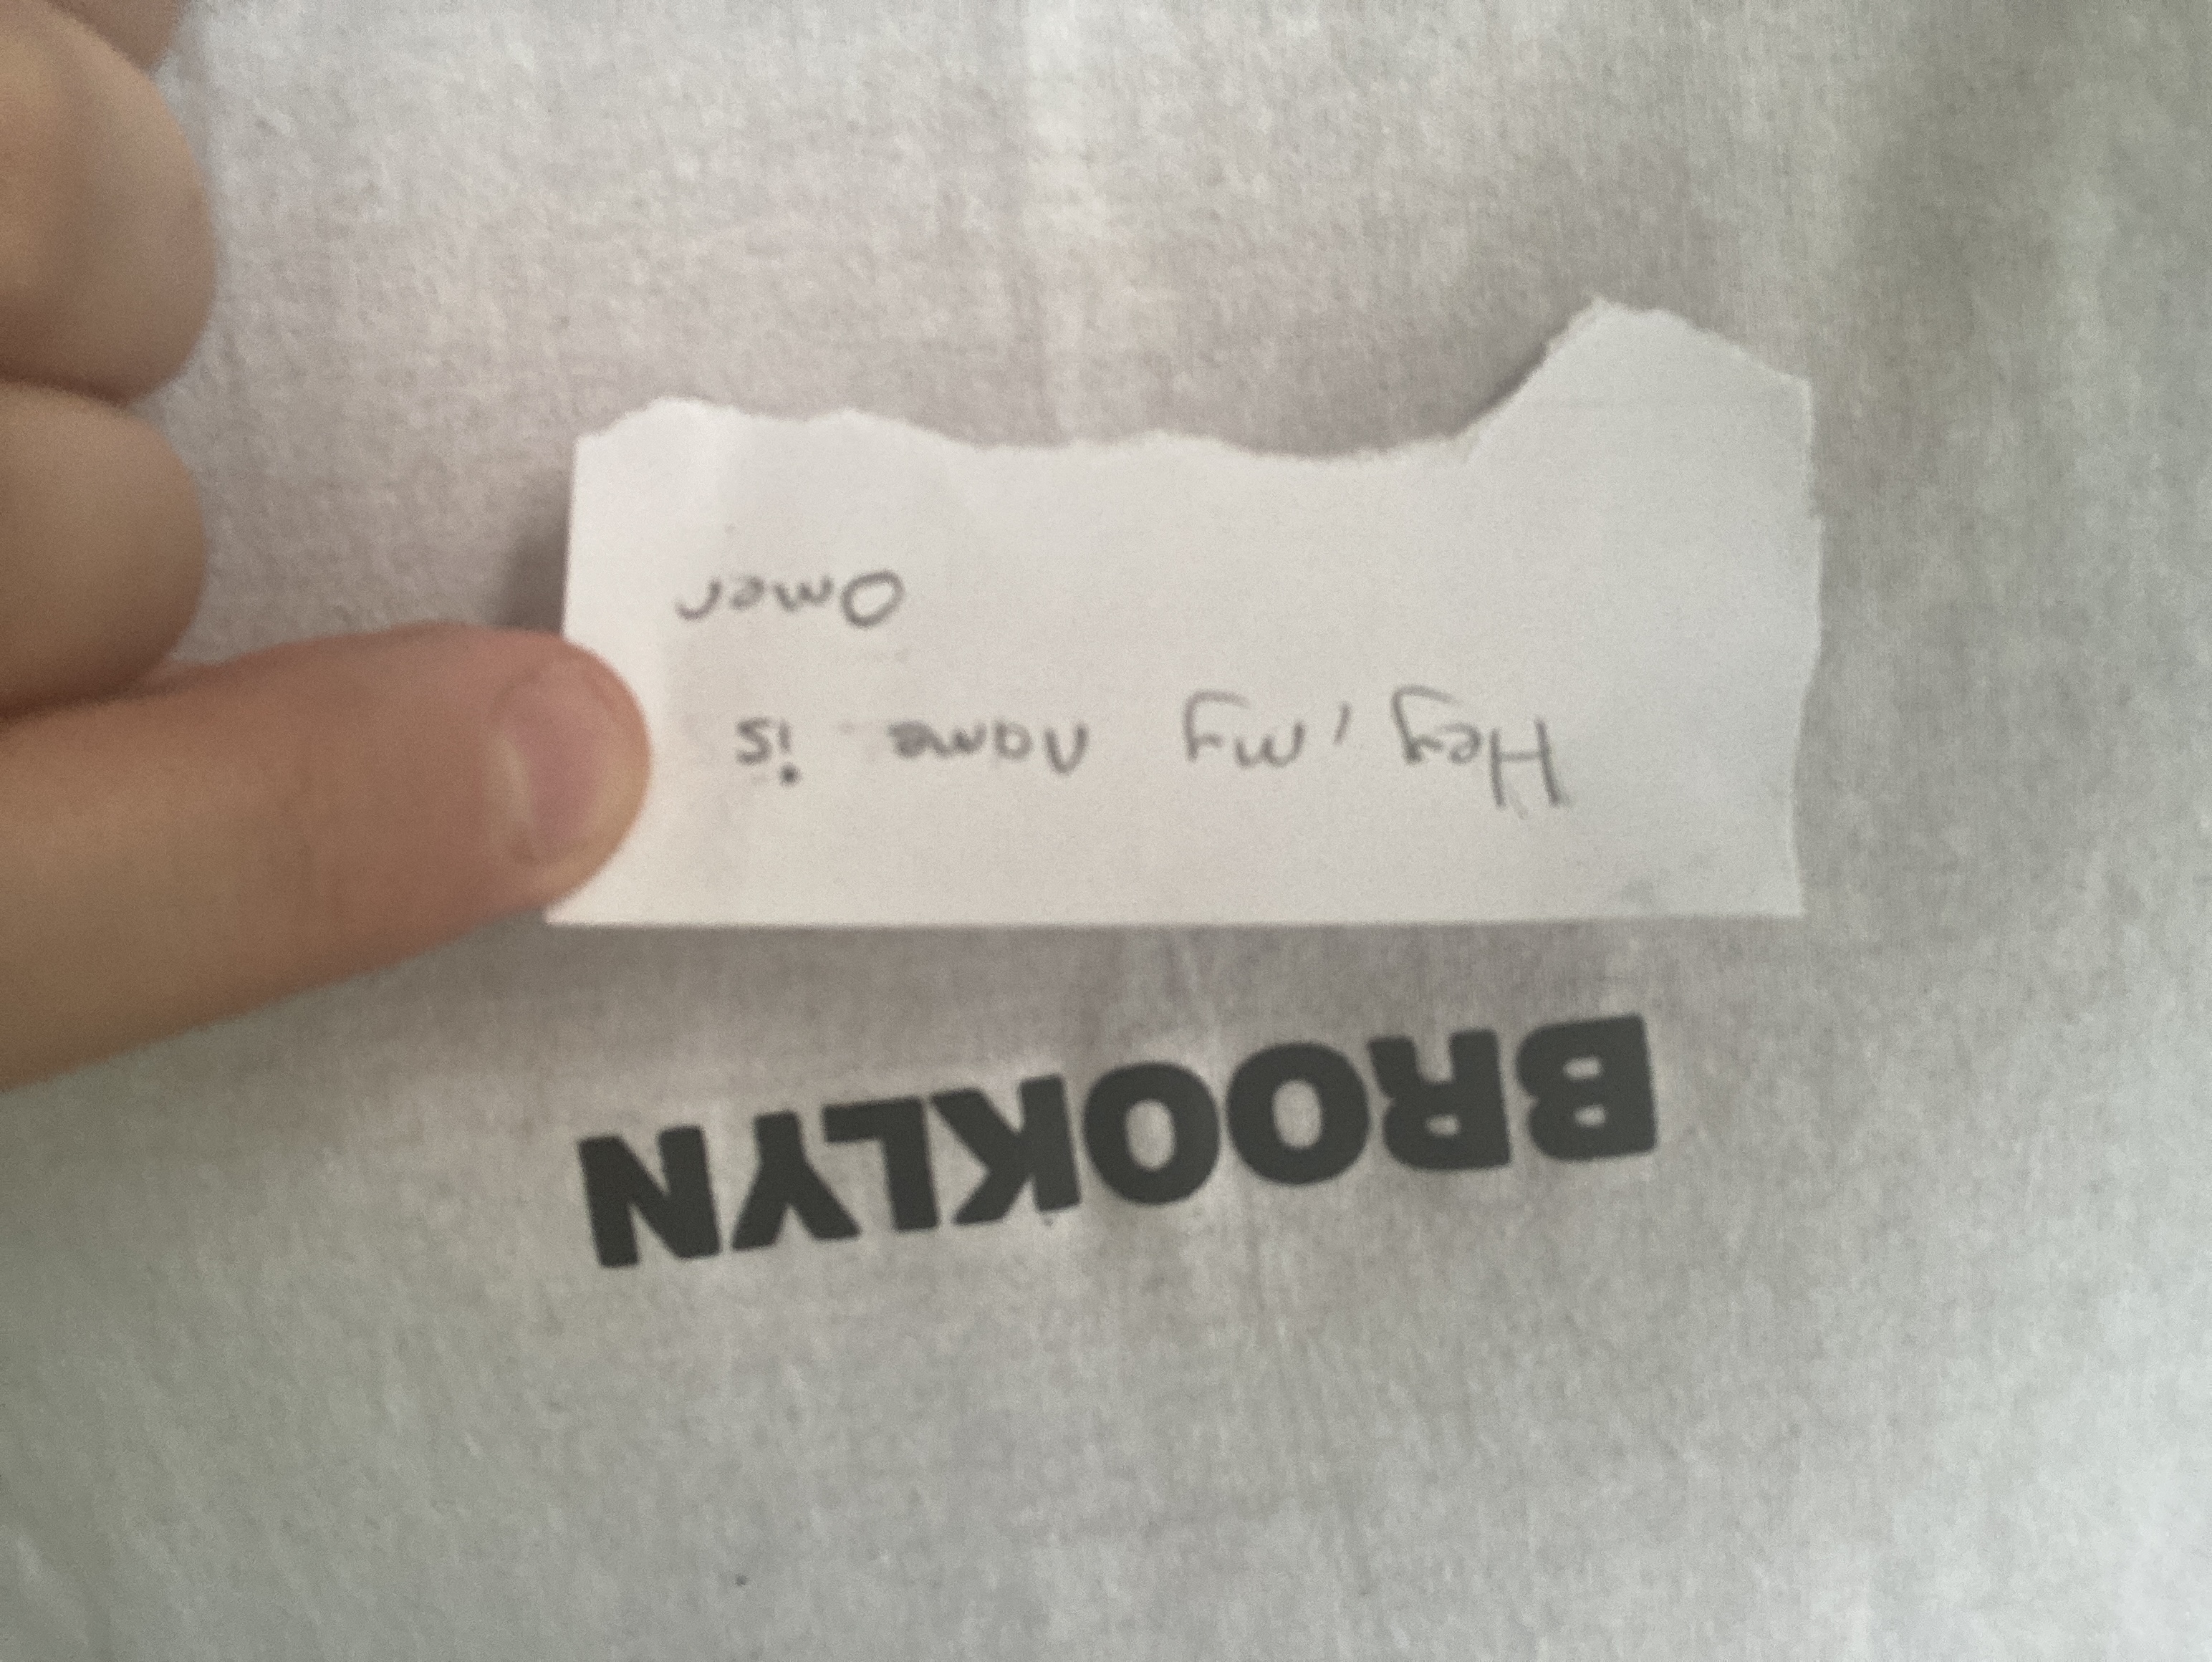 BROOKLYN
Hey, my name is
Omer